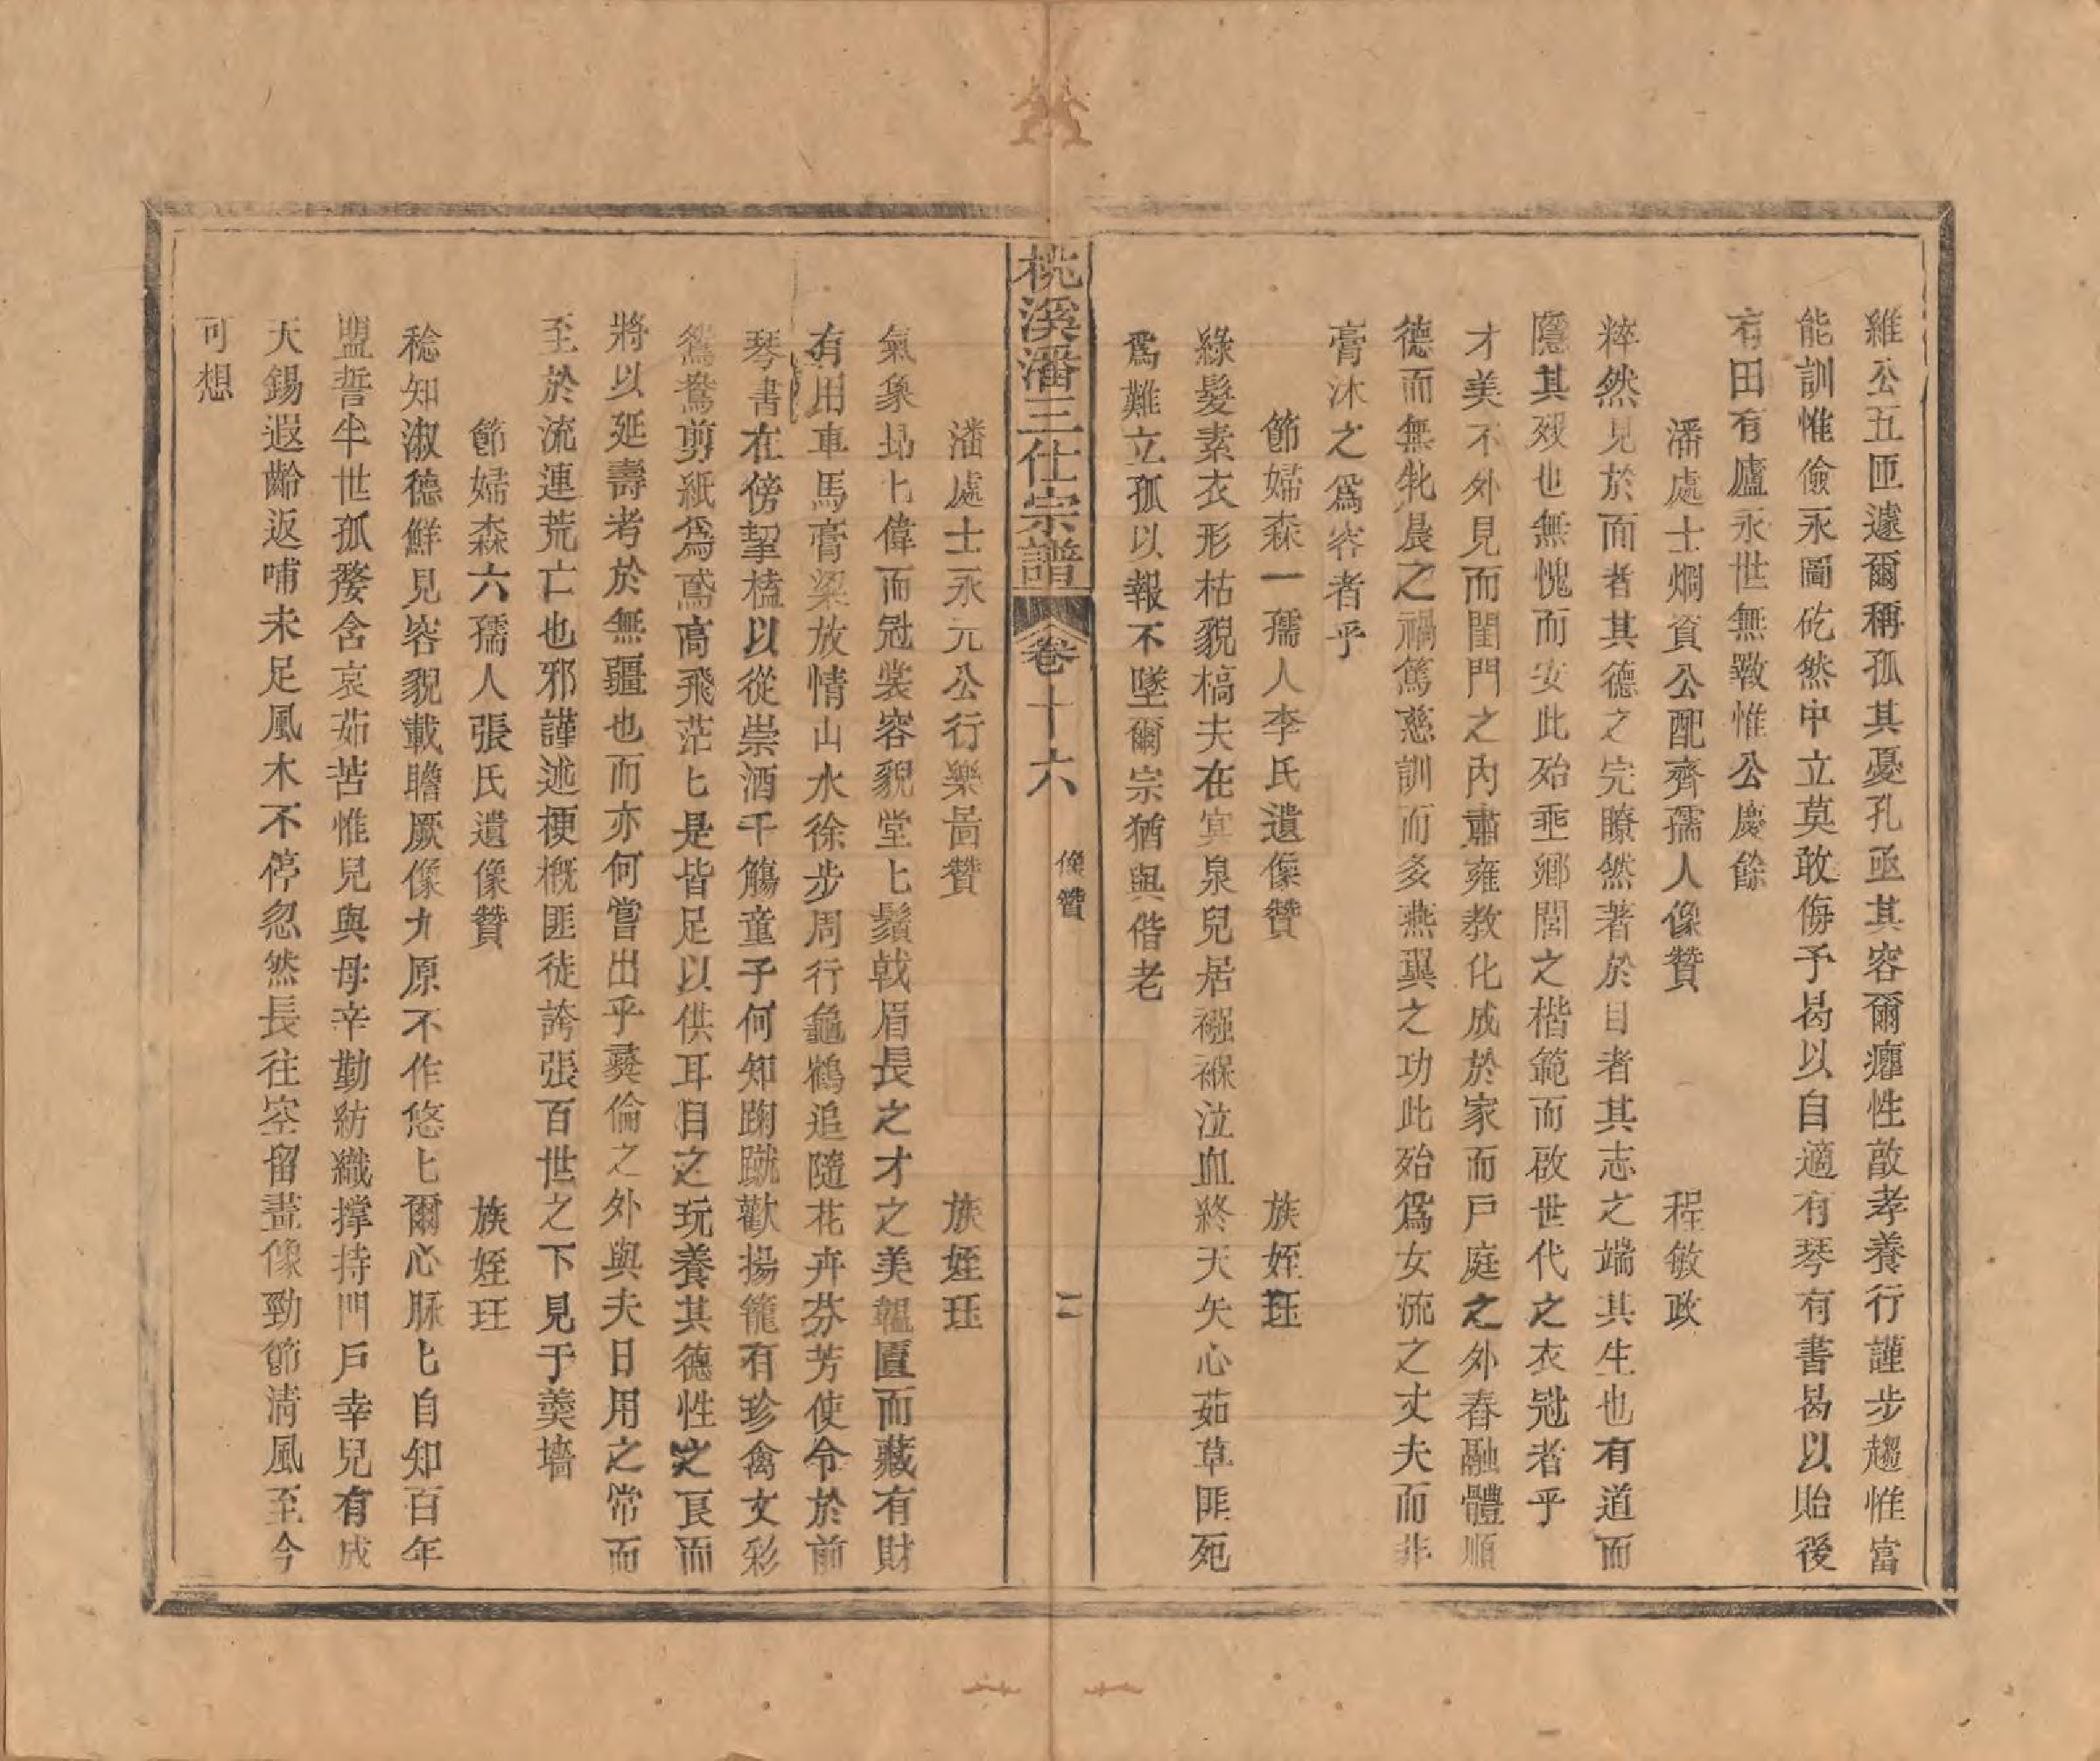 維公五匝遽爾稱孤其憂孔亟其容爾癯性敢孝養行謹步趨惟富
能訓惟儉永圖矻然中立莫敢侮予曷以自適有琴有書曷以貽後
有田有廬永世無斁惟公慶餘
潘處士烱資公配齊孺人像贊 程敏政
粹然見於面者其德之完瞭然著於目者其志之端其生也有道而
隱其歿也無愧而安此殆垂鄉閭之楷範而啟世代之衣冠者乎
才美不外見而閨門之內肅雍教化成於家而戶庭之外春融體順
德而無牝晨之禍篤慈訓而多燕翼之功此殆爲女流之丈夫而非
膏沐之爲容者乎
節婦森一孺人李氏遺像贊 族姪珏
綠髮素衣形枯貌槁夫在冥泉兒居襁褓泣血終天矢心茹草匪死
爲難立孤以報不墜爾宗猶與偕老
桃溪潘三仕宗譜 卷十六 像贊 二
潘處士永元公行樂啚贊 族姪珏
氣象昻匕偉而冠裳容貌堂匕鬚戟眉長之才之美韞匱而藏有財
有用車馬膏粱放情山水徐步周行龜鶴追隨花卉芬芳使令於前
琴書在傍挈榼以從崇酒千觴童子何知踘蹴歡揚籠有珍禽文彩
鴛鴦剪紙爲鳶高飛茫匕是皆足以供耳目之玩養其德性之良而
將以延壽考於無疆也而亦何嘗出乎彛倫之外與夫日用之常而
至於流連荒亡也邪謹述梗概匪徒誇張百世之下見于羹墻
節婦森六孺人張氏遺像贊 族姪珏
稔知淑德鮮見容貌載瞻厥像九原不作悠匕爾心脉匕自知百年
盟誓半世孤嫠含哀茹苦惟兒與母辛勤紡織撑持門戶幸兒有成
天錫遐齡返哺未足風木不停忽然長往空留畫像勁節清風至今
可想